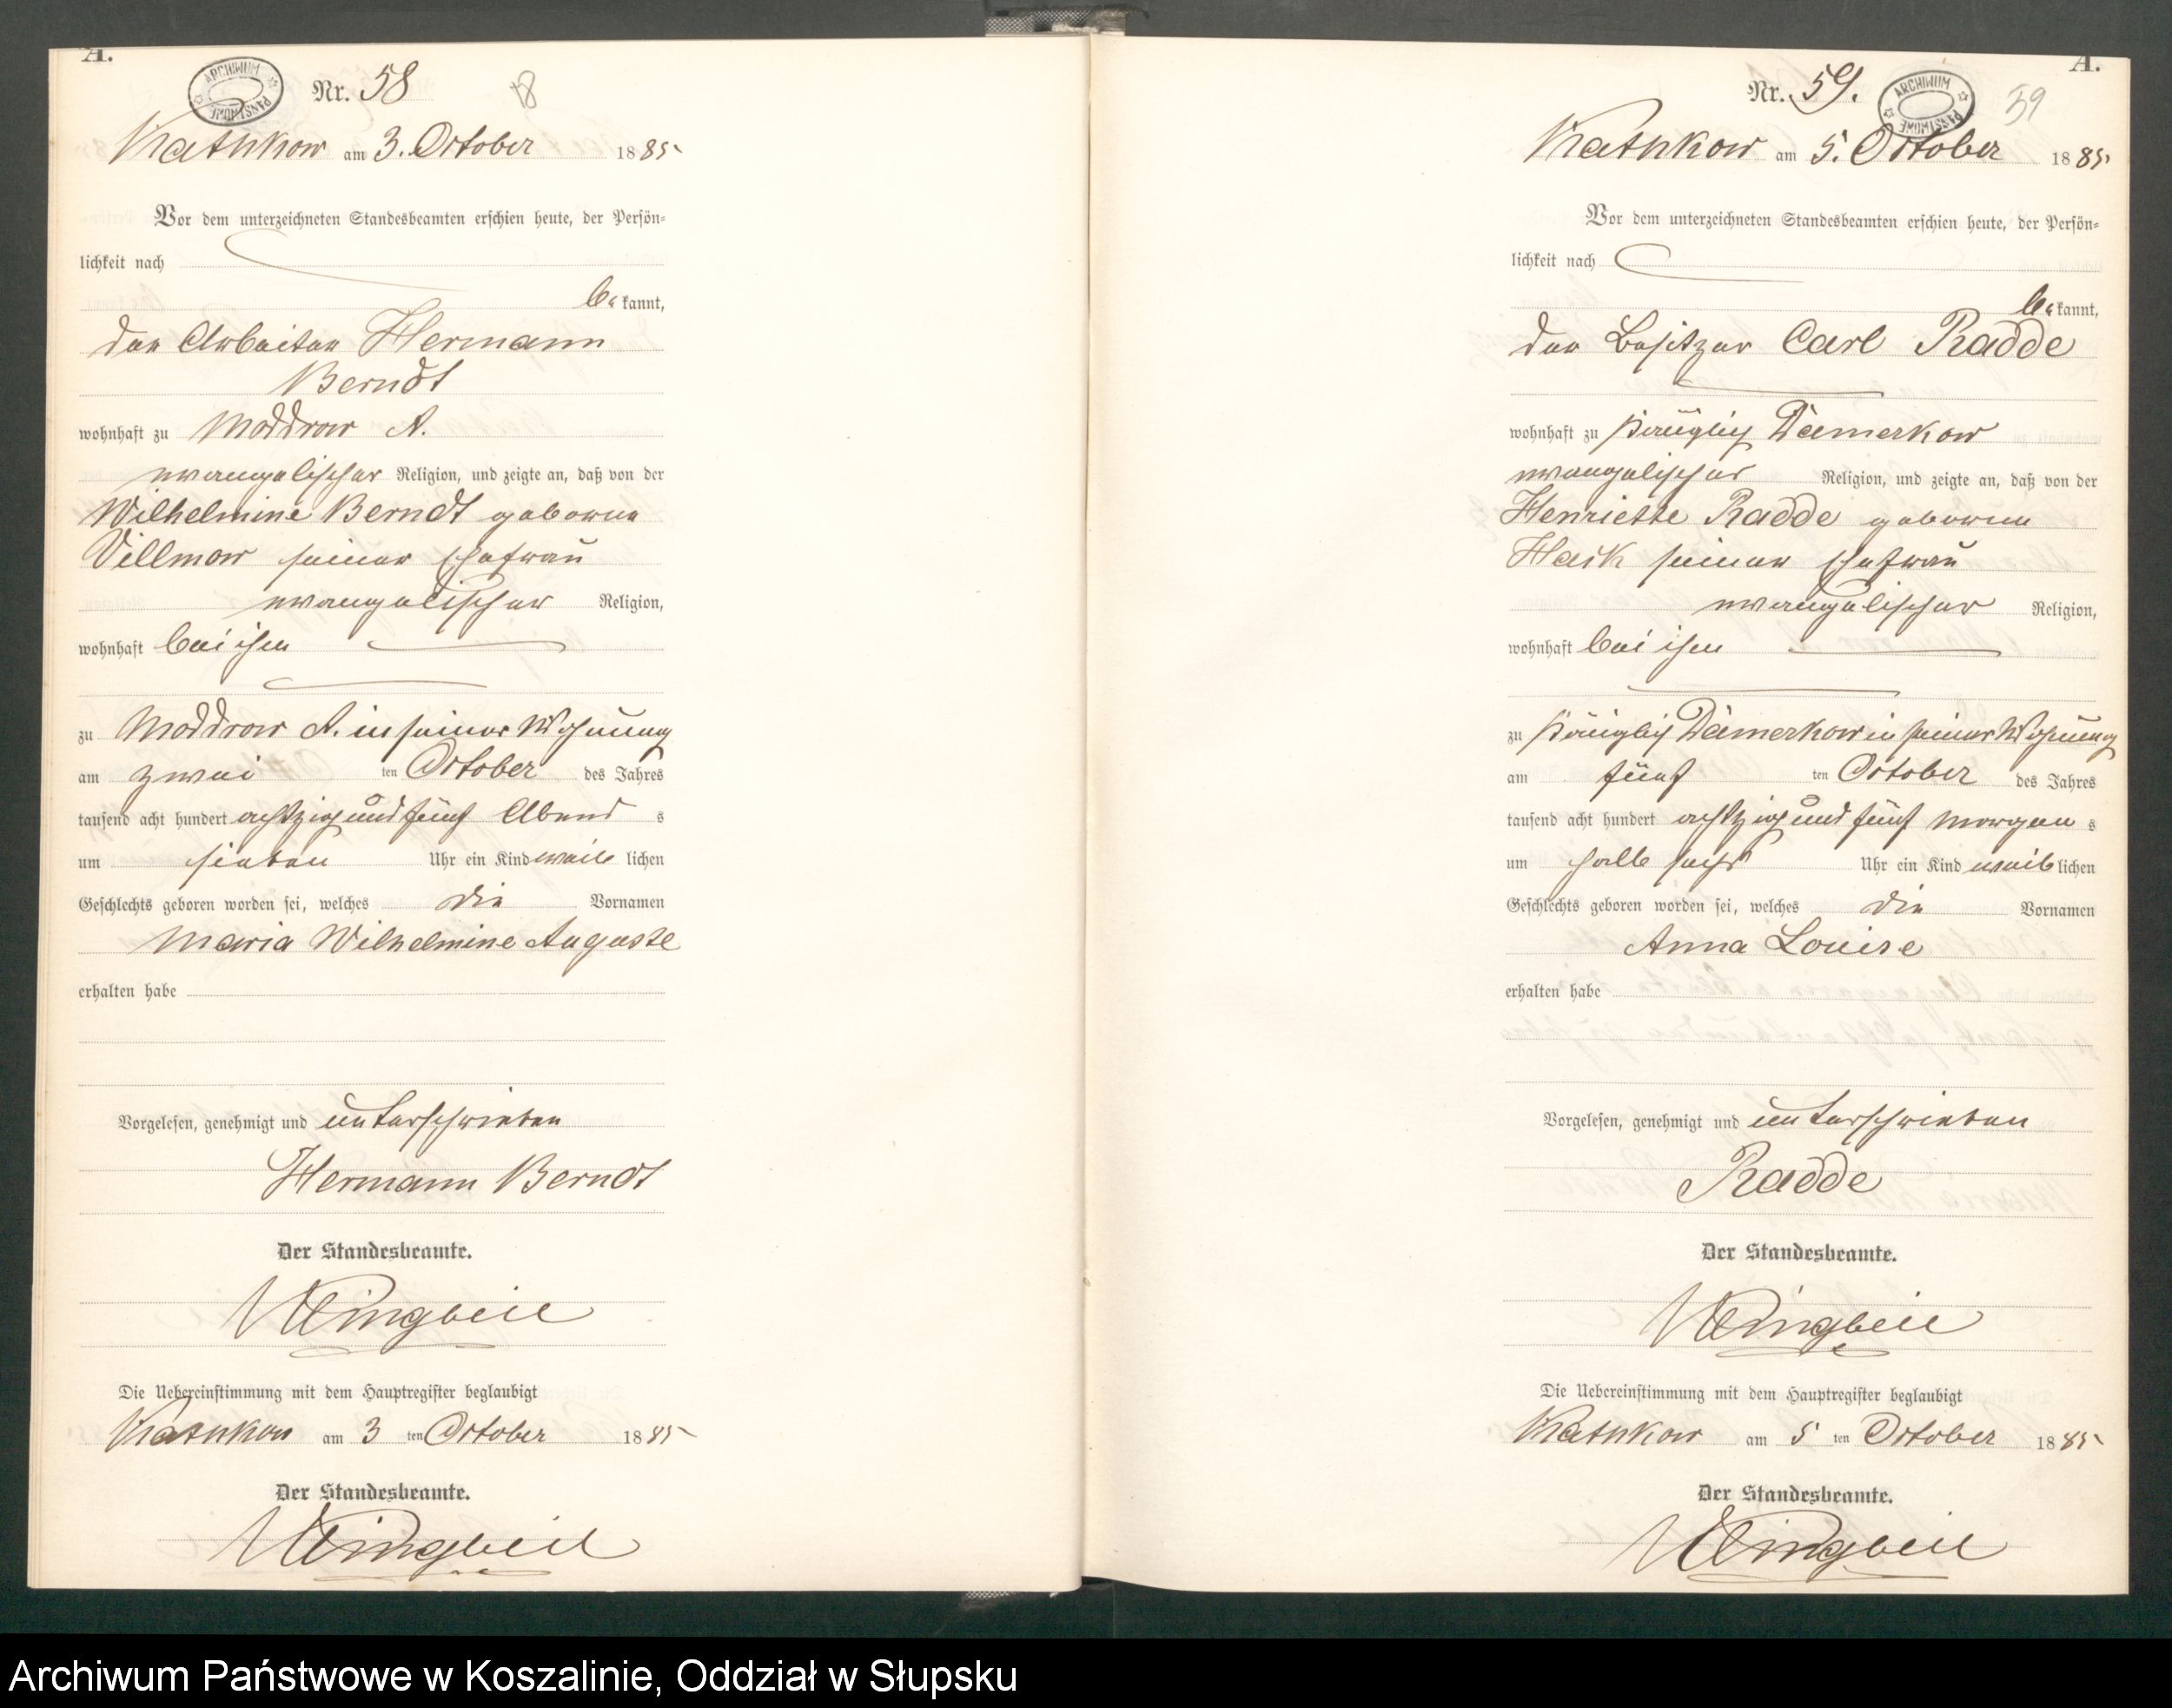 A.
ARCHIWUM PAŃSTWOWE
Nr. 58
58
Kathkow am 3. October 1885
Vor dem unterzeichneten Standesbeamten erschien heute, der Persön=
lichkeit nach
be kannt,
der Arbeiter Hermann
Berndt
wohnhaft zu Moddrow A.
evangelischer Religion, und zeigte an, daß von der
Wilhelmine Berndt geborene
Villmow seiner Ehefrau
evangelischer Religion,
wohnhaft bei ihm
zu Moddrow A. in seiner Wohnung
am zwei ten October des Jahres
tausend acht hundert achtzig und fünf Abend s
um sieben Uhr ein Kind weib lichen
Geschlechts geboren worden sei, welches die Vornamen
Maria Wilhelmine Auguste
erhalten habe
Vorgelesen, genehmigt und unterschrieben
Hermann Berndt
Der Standesbeamte.
Klingbeil
Die Uebereinstimmung mit dem Hauptregister beglaubigt
Kathkow am 3 ten October 1885
Der Standesbeamte.
Klingbeil
A.
ARCHIWUM PAŃSTWOWE
Nr. 59.
59
Kathkow am 5. October 1885
Vor dem unterzeichneten Standesbeamten erschien heute, der Persön=
lichkeit nach
be kannt,
der Besitzer Carl Radde
wohnhaft zu Damerkow
evangelischer Religion, und zeigte an, daß von der
Henriette Radde geborene
Hack seiner Ehefrau
evangelischer Religion,
wohnhaft bei ihm
zu Damerkow in seiner Wohnung
am fünf ten October des Jahres
tausend acht hundert achtzig und fünf Morgen s
um halb sechs Uhr ein Kind weib lichen
Geschlechts geboren worden sei, welches die Vornamen
Anna Louise
erhalten habe
Vorgelesen, genehmigt und unterschrieben
Radde
Der Standesbeamte.
Klingbeil
Die Uebereinstimmung mit dem Hauptregister beglaubigt
Kathkow am 5 ten October 1885
Der Standesbeamte.
Klingbeil
Archiwum Państwowe w Koszalinie, Oddział w Słupsku